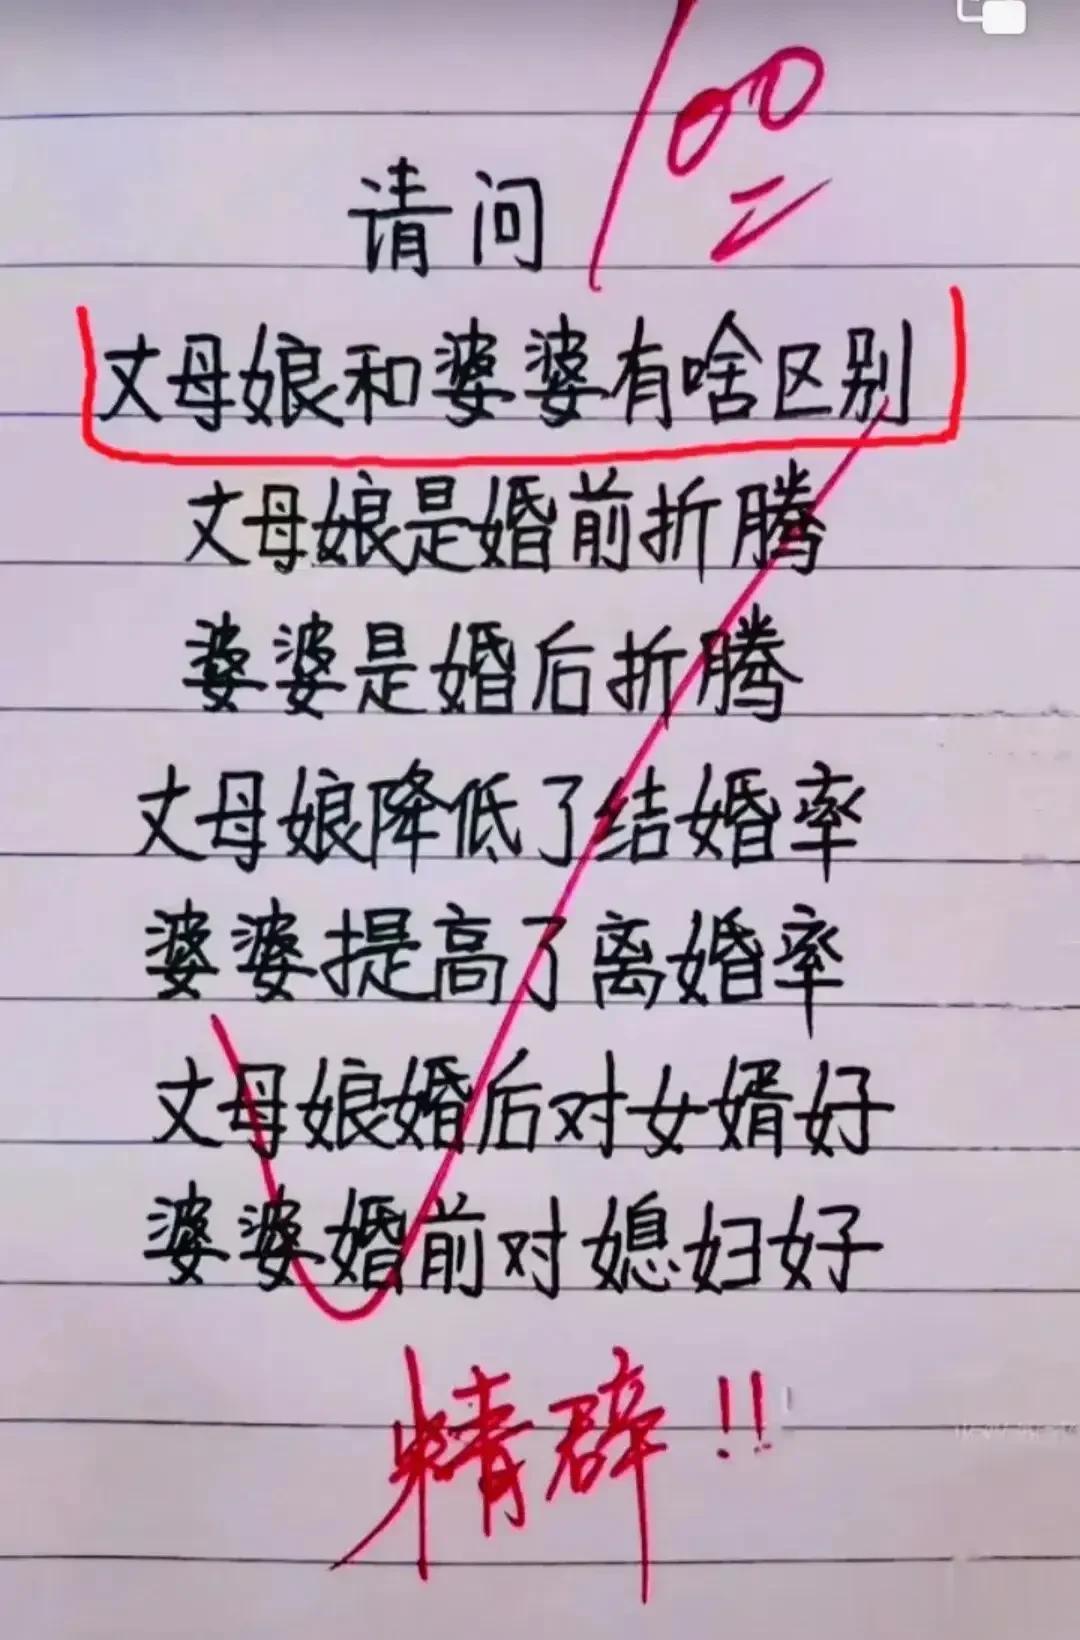 100
请问
丈母娘和婆婆有啥区别
丈母娘是婚前折腾
婆婆是婚后折腾
丈母娘降低了结婚率
婆婆提高了离婚率
丈母娘婚后对女婿好
婆婆婚前对媳妇好
精辟!!